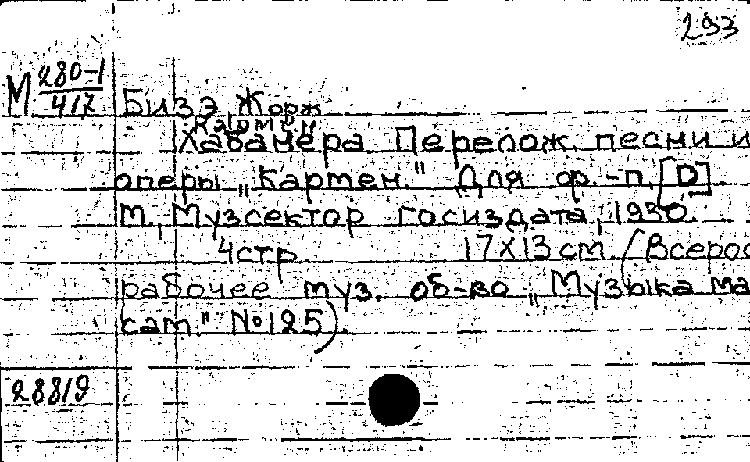 293
М 280-1/417
Бизэ Жорж
Кармен
Хабанера Перелож. песни и
оперы „Кармен." Для фр.-п. [D]
М., Музсектор Госиздата, 1930.
4стр 17x13 см (Всерос
рабочее муз. об-во „Музыка ма
сам." №125).
28819